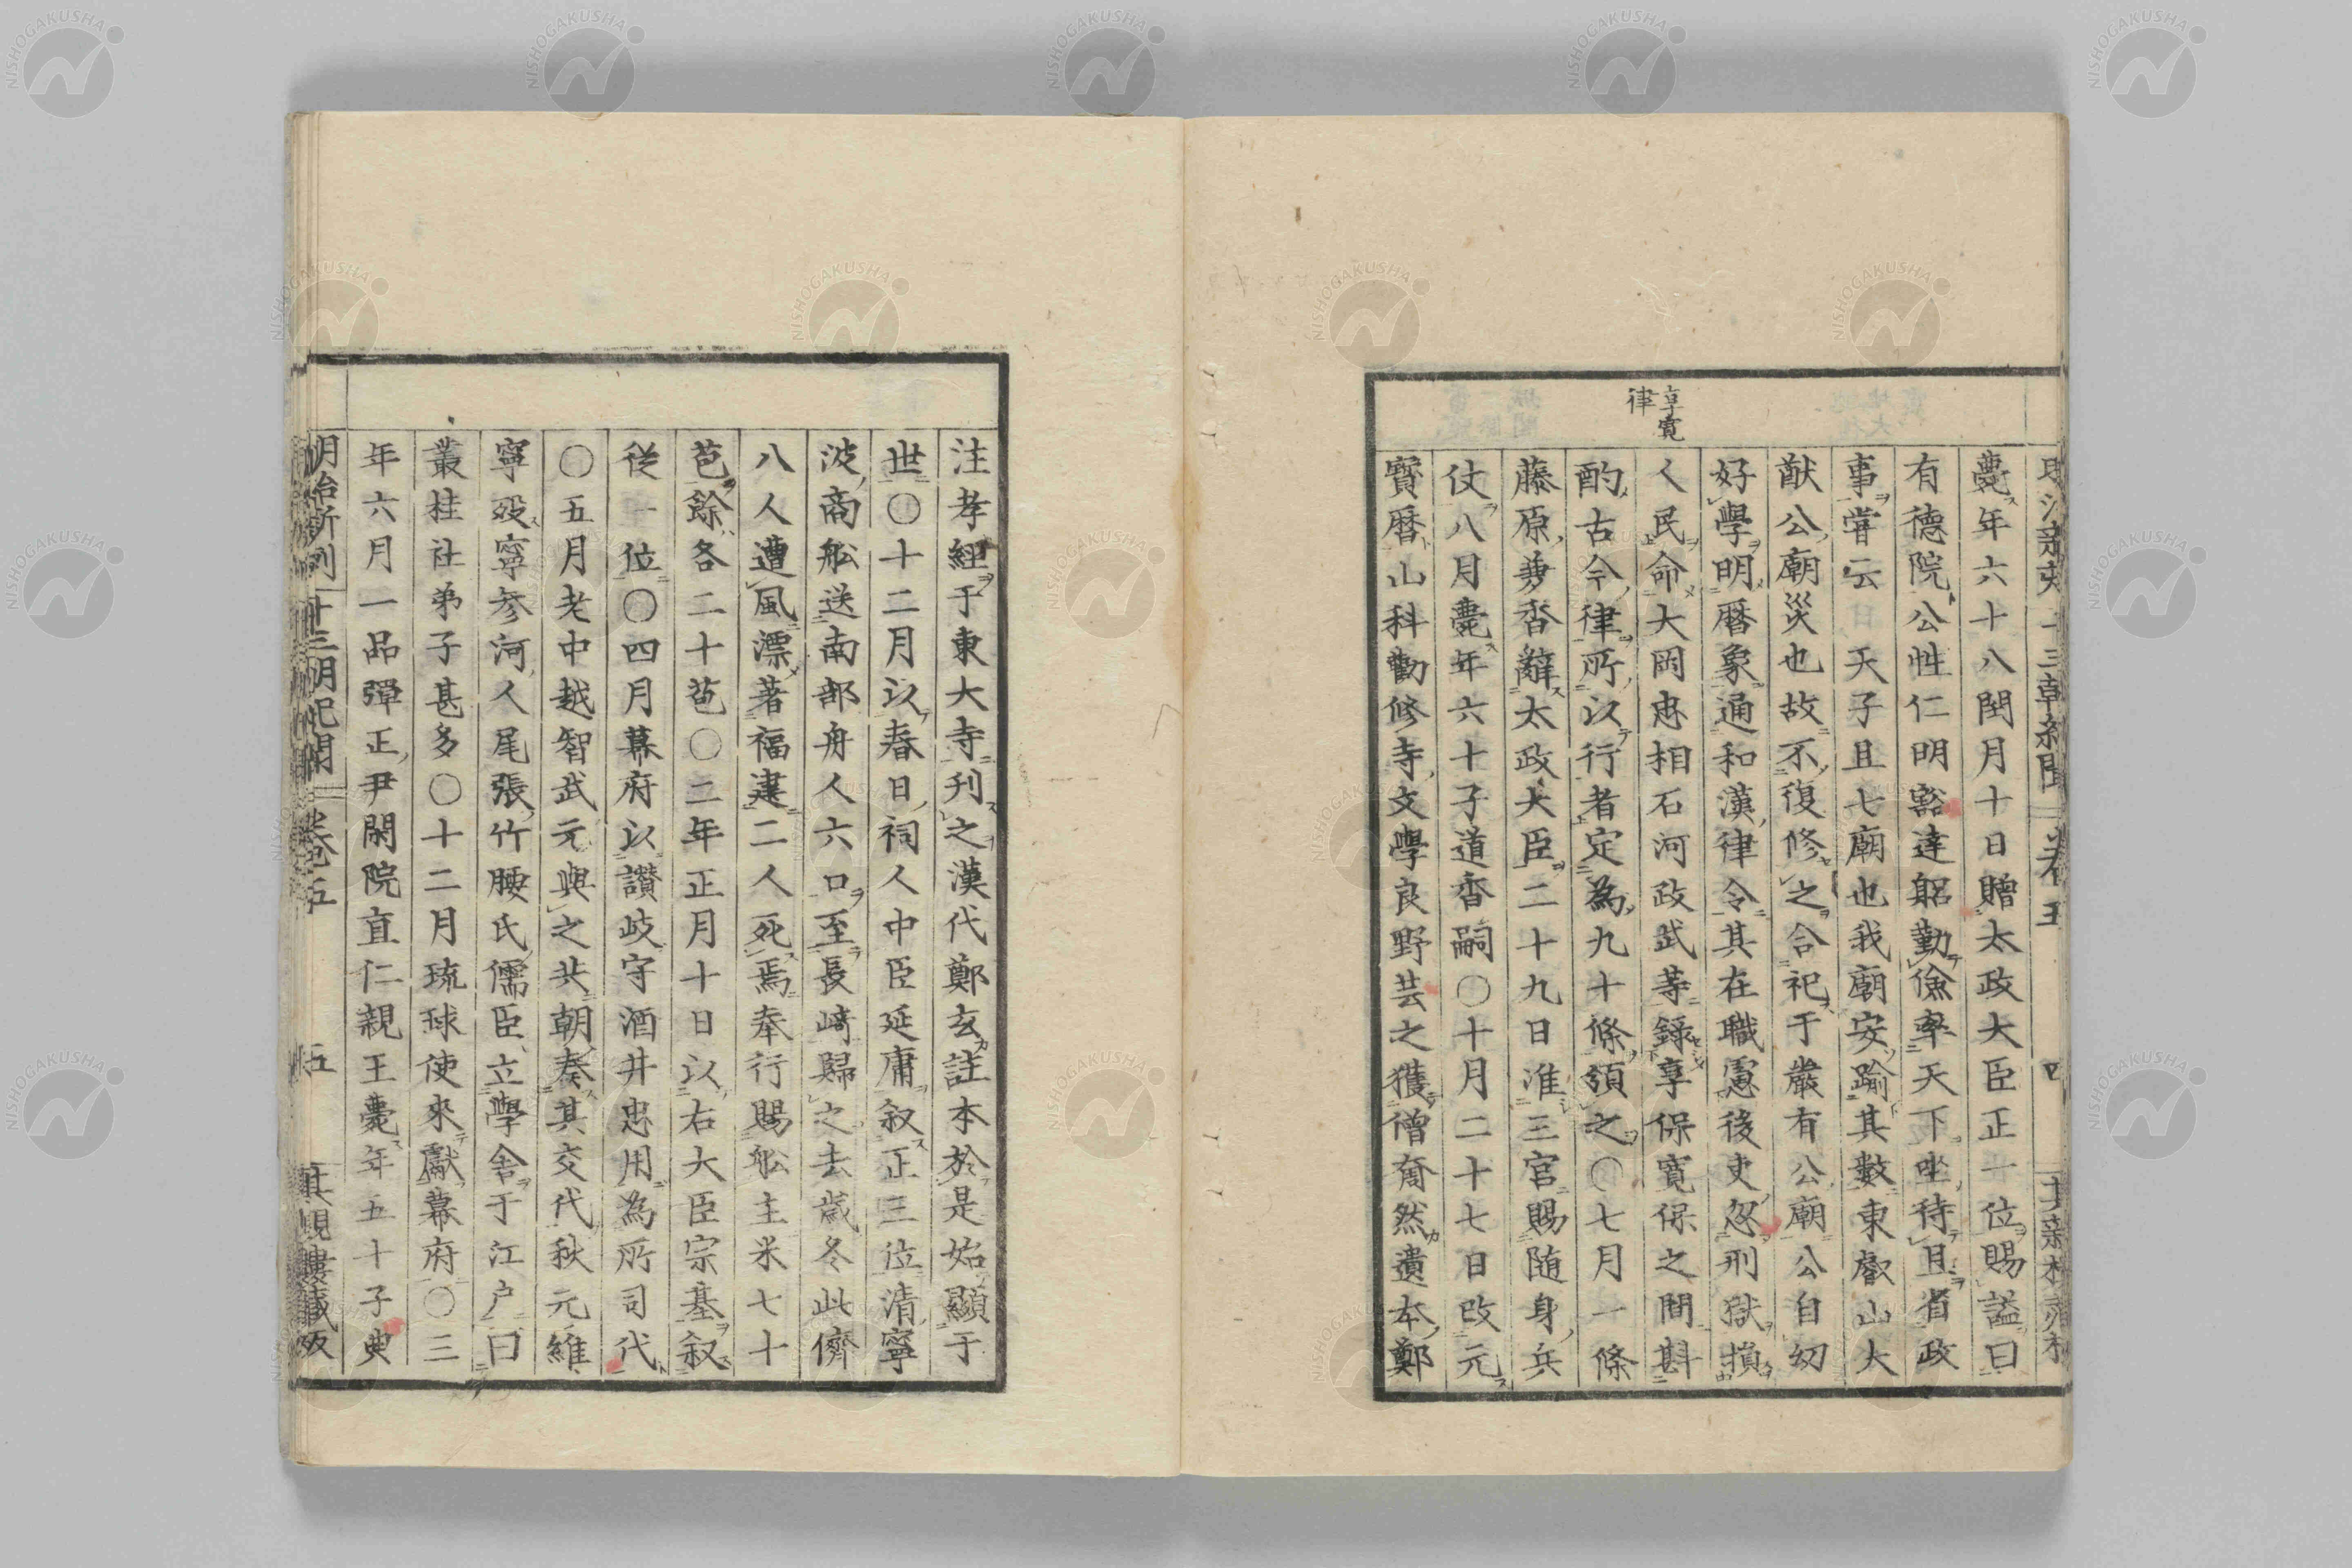 享寛
律
薨年六十八閏月十日贈太政大臣正一位賜謚曰
有德院公性仁明豁達躬勤儉率天下坐待旦省政
事嘗云日天子且七廟也我廟安踰其數東叡山大
猷公廟災也故不復修之合祀于嚴有公廟公自幼
好學明曆象通和漢律令其在職慮後吏忍刑獄損
人民命大岡忠相石河政武等錄享保寬保之間斟
酌古今律所以行者定為九十條領之〇七月一條
藤原兼香辭太政大臣二十九日准三宮賜随身兵
仗八月薨年六十子道香嗣〇十月二十七日改元
寶曆山科勸修寺文學良野芸之獲僧奝然遺本鄭
注孝經于東大寺刊之漢代鄭玄註本於是始顯于
世〇十二月以春日祠人中臣延庸叙正三位清寧
波商舩送南部舟人六口至長崎歸之去歲冬此儕
八人遭風漂著福建二人死焉奉行賜舩主米七十
苞餘各二十苞〇二年正月十日以右大臣宗基叙
從一位〇四月幕府以讃岐守酒井忠用為所司代
〇五月老中越智武元與之共朝奏其交代秋元維
寧歿寧參河人尾張竹腰氏儒臣立學舍于江户曰
叢桂社弟子甚多〇十二月琉球使來獻幕府〇三
年六月一品彈正尹閑院直仁親王薨年五十子典
明治新刻 十三朝紀聞 卷五 五 其蜆髏藏版